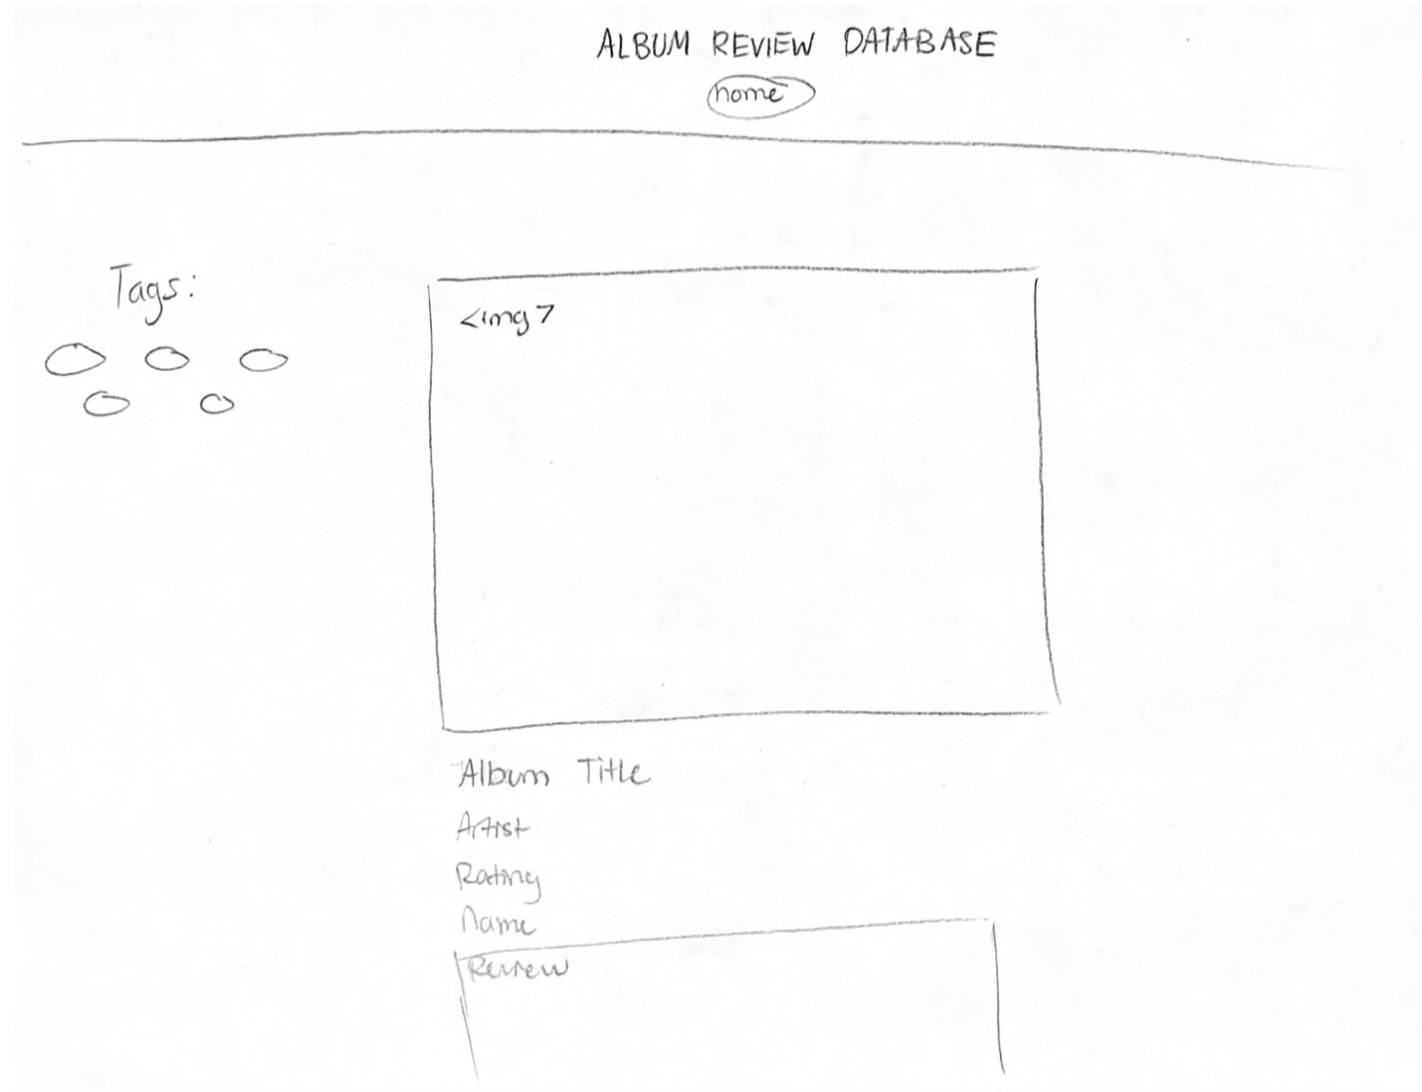 ALBUM REVIEW DATABASE
home
Tags:
<img>
Album Title
Artist
Rating
Name
Review